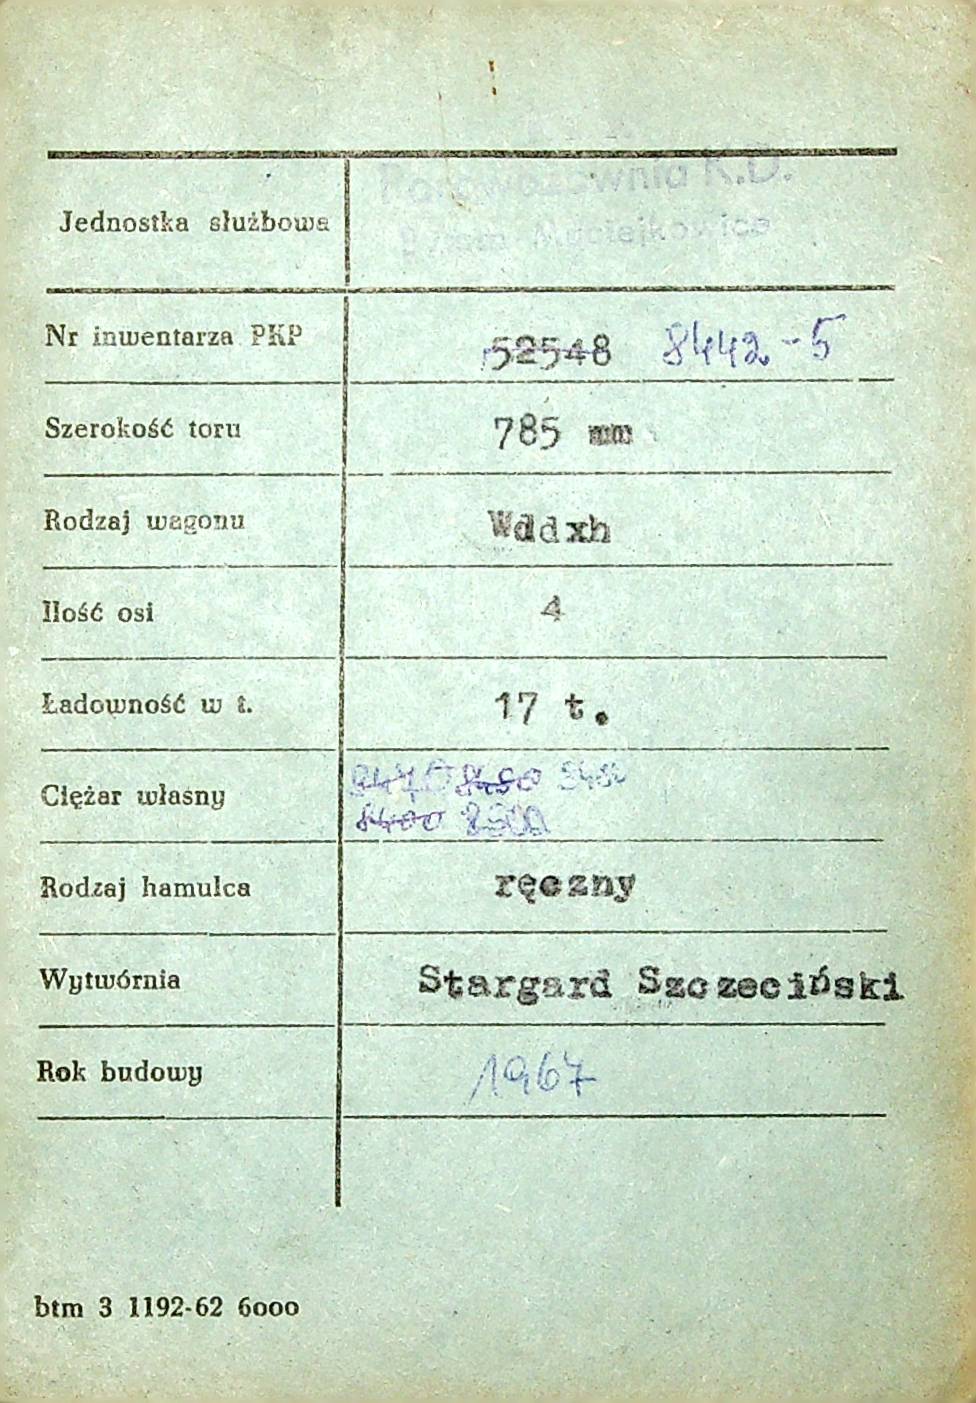 Parowozownia K.D.
Jednostka służbowa
Bytom Maciejkowice
Nr inwentarza PKP 52548 8442-5
Szerokość toru 785 mm
Rodzaj wagonu Wddxh
Ilość osi 4
Ładowność w t. 17 t.
8450
Ciężar własny
8400
Rodzaj hamulca ręczny
Wytwórnia Stargard Szczeciński
Rok budowy 1967
btm 3 1192-62 6000